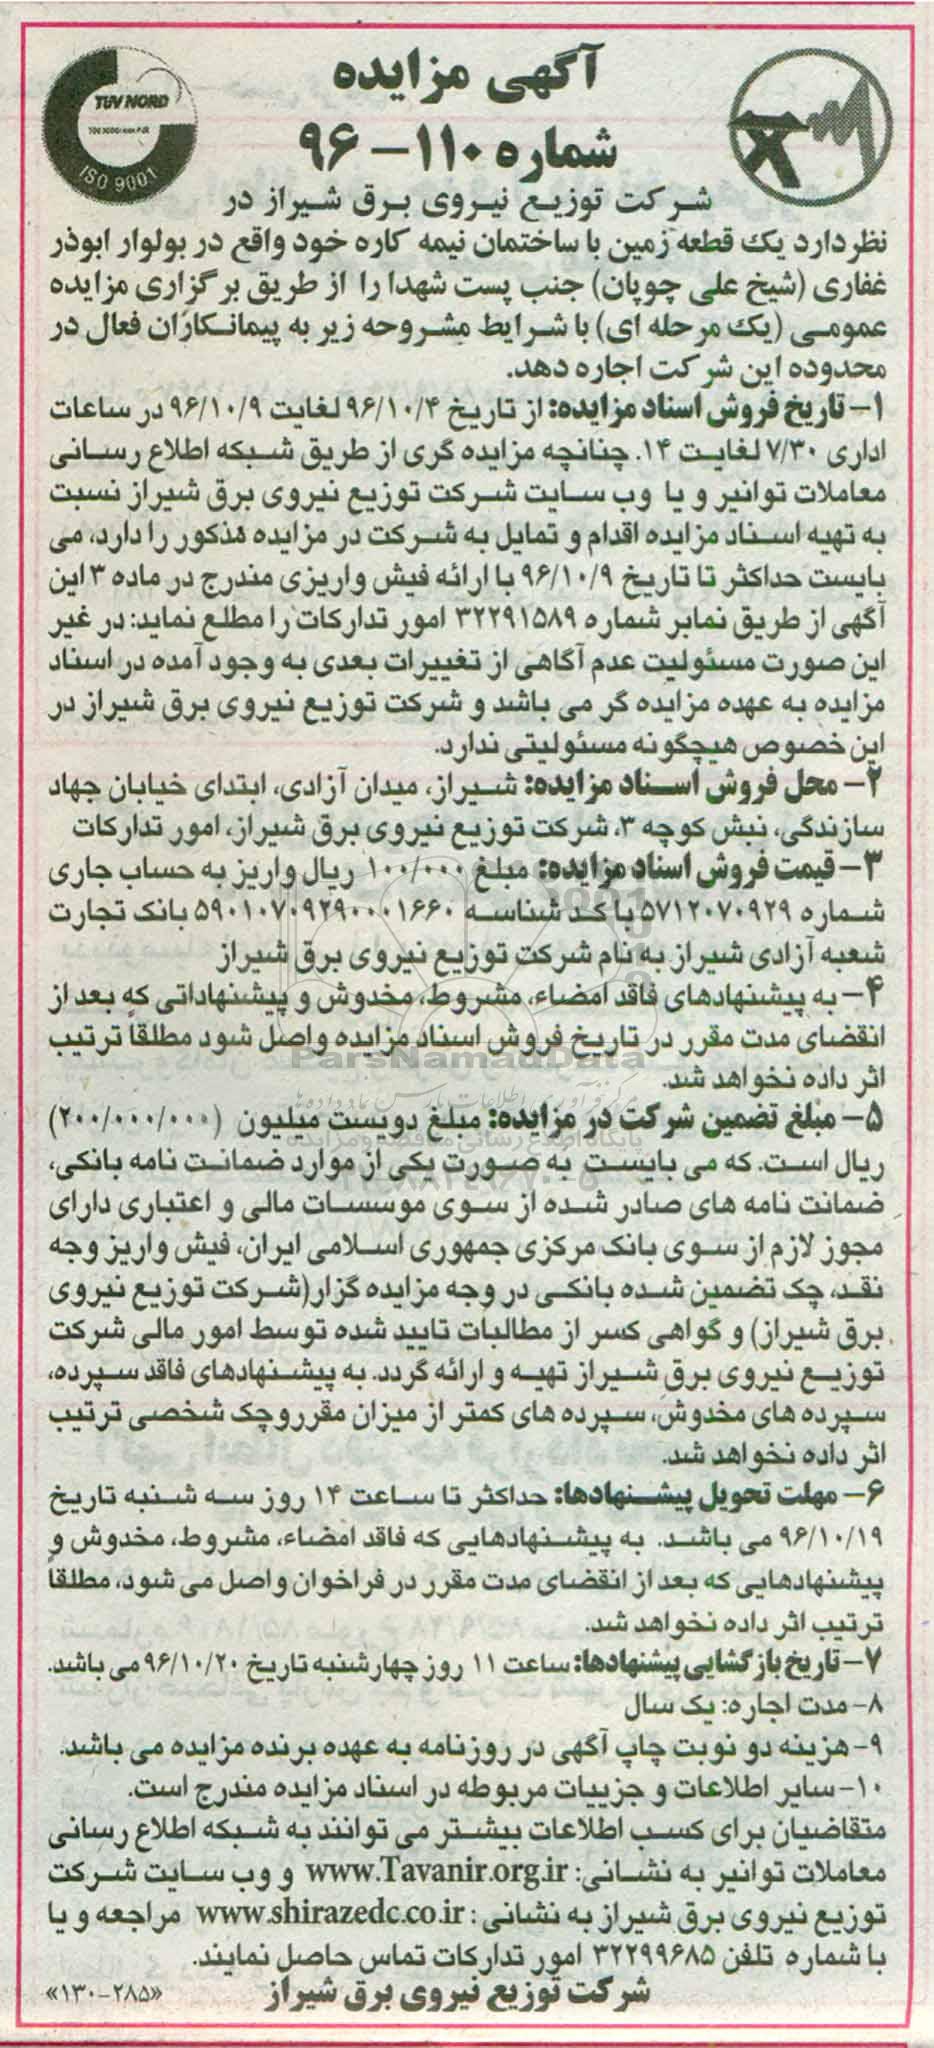 آگهی مزایده
شماره ۱۱۰- ۹۶
TÜV NORD
ISO 9001
شرکت توزیع نیروی برق شیراز در
نظر دارد یک قطعه زمین با ساختمان نیمه کاره خود واقع در بولوار ابوذر
غفاری (شیخ علی چوپان) جنب پست شهدا را از طریق برگزاری مزایده
عمومی (یک مرحله ای) با شرایط مشروحه زیر به پیمانکاران فعال در
محدوده این شرکت اجاره دهد.
۱- تاریخ فروش اسناد مزایده: از تاریخ ۹۶/۱۰/۴ لغایت ۹۶/۱۰/۹ در ساعات
اداری ۷/۳۰ لغایت ۱۴. چنانچه مزایده گری از طریق شبکه اطلاع رسانی
معاملات توانیر و یا وب سایت شرکت توزیع نیروی برق شیراز نسبت
به تهیه اسناد مزایده اقدام و تمایل به شرکت در مزایده مذکور را دارد، می
بایست حداکثر تا تاریخ ۹۶/۱۰/۹ با ارائه فیش واریزی مندرج در ماده ۳ این
آگهی از طریق نمابر شماره ۳۲۲۹۱۵۸۹ امور تدارکات را مطلع نماید: در غیر
این صورت مسئولیت عدم آگاهی از تغییرات بعدی به وجود آمده در اسناد
مزایده به عهده مزایده گر می باشد و شرکت توزیع نیروی برق شیراز در
این خصوص هیچگونه مسئولیتی ندارد.
۲- محل فروش اسناد مزایده: شیراز، میدان آزادی، ابتدای خیابان جهاد
سازندگی، نبش کوچه ۳، شرکت توزیع نیروی برق شیراز، امور تدارکات
۳- قیمت فروش اسناد مزایده: مبلغ ۱۰۰/۰۰۰ ریال واریز به حساب جاری
شماره ۵۷۱۲۰۷۰۹۲۹ با کد شناسه ۵۹۰۱۰۷۰۹۲۹۰۰۰۱۶۶۰ بانک تجارت
شعبه آزادی شیراز به نام شرکت توزیع نیروی برق شیراز
۴- به پیشنهادهای فاقد امضاء، مشروط، مخدوش و پیشنهاداتی که بعد از
انقضای مدت مقرر در تاریخ فروش اسناد مزایده واصل شود مطلقاً ترتیب
ParsNamadData
اثر داده نخواهد شد.
۵- مبلغ تضمین شرکت در مزایده: مبلغ دویست میلیون (۲۰۰/۰۰۰/۰۰۰)
ریال است. که می بایست به صورت یکی از موارد ضمانت نامه بانکی،
ضمانت نامه های صادر شده از سوی موسسات مالی و اعتباری دارای
مجوز لازم از سوی بانک مرکزی جمهوری اسلامی ایران، فیش واریز وجه
نقد، چک تضمین شده بانکی در وجه مزایده گزار(شرکت توزیع نیروی
برق شیراز) و گواهی کسر از مطالبات تایید شده توسط امور مالی شرکت
توزیع نیروی برق شیراز تهیه و ارائه گردد. به پیشنهادهای فاقد سپرده،
سپرده های مخدوش، سپرده های کمتر از میزان مقرر و چک شخصی ترتیب
اثر داده نخواهد شد.
۶- مهلت تحویل پیشنهادها: حداکثر تا ساعت ۱۴ روز سه شنبه تاریخ
۹۶/۱۰/۱۹ می باشد. به پیشنهادهایی که فاقد امضاء، مشروط، مخدوش و
پیشنهادهایی که بعد از انقضای مدت مقرر در فراخوان واصل می شود، مطلقاً
ترتیب اثر داده نخواهد شد.
۷- تاریخ بازگشایی پیشنهادها: ساعت ۱۱ روز چهارشنبه تاریخ ۹۶/۱۰/۲۰ می باشد.
۸- مدت اجاره: یک سال
۹- هزینه دو نوبت چاپ آگهی در روزنامه به عهده برنده مزایده می باشد.
۱۰- سایر اطلاعات و جزییات مربوطه در اسناد مزایده مندرج است.
متقاضیان برای کسب اطلاعات بیشتر می توانند به شبکه اطلاع رسانی
معاملات توانیر به نشانی: www.Tavanir.org.ir و وب سایت شرکت
توزیع نیروی برق شیراز به نشانی : www.shirazedc.co.ir مراجعه و یا
با شماره تلفن ۳۲۲۹۹۶۸۵ امور تدارکات تماس حاصل نمایند.
شرکت توزیع نیروی برق شیراز
«۱۳۰-۲۸۵»